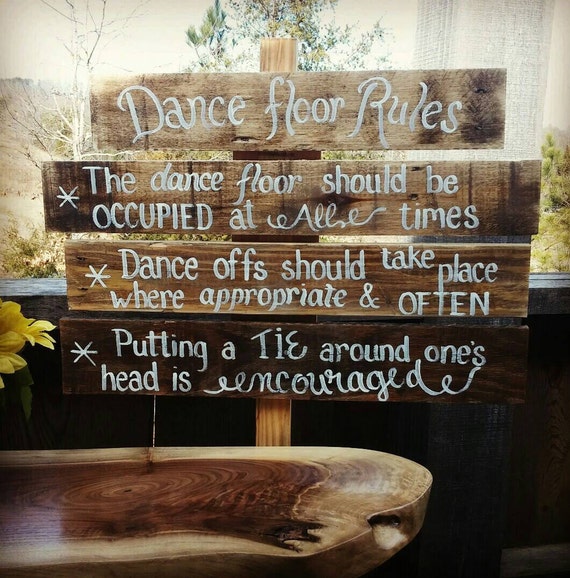 Dance floor Rules
* The dance floor should be
OCCUPIED at All times
* Dance offs should take place
where appropriate & OFTEN
* Putting a TIE around one's
head is encouraged